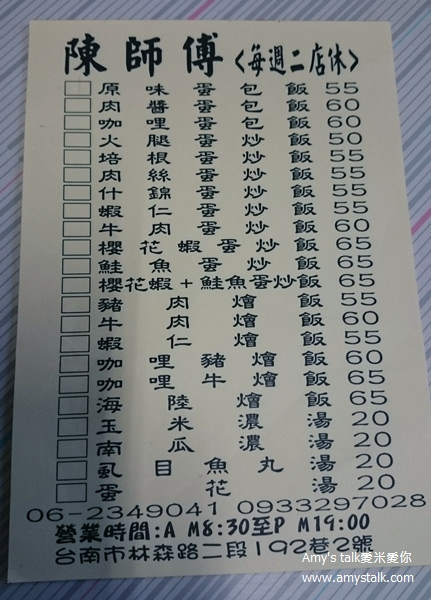 陳師傅<每週二店休>
原味蛋包飯 55
肉醬蛋包飯 60
咖哩蛋包飯 60
火腿蛋炒飯 50
培根蛋炒飯 55
肉絲蛋炒飯 55
什錦蛋炒飯 55
蝦仁蛋炒飯 55
牛肉蛋炒飯 60
櫻花蝦蛋炒飯 65
鮭魚蛋炒飯 65
櫻花蝦+鮭魚蛋炒飯 65
豬肉燴飯 55
牛肉燴飯 60
蝦仁燴飯 55
咖哩豬燴飯 60
咖哩牛燴飯 65
海陸燴飯 65
玉米濃湯 20
南瓜濃湯 20
虱目魚丸湯 20
蛋花湯 20
06-2349041 0933297028
營業時間:AM8:30至PM19:00
台南市林森路二段192巷2號
Amy's talk愛米愛你
www.amystalk.com